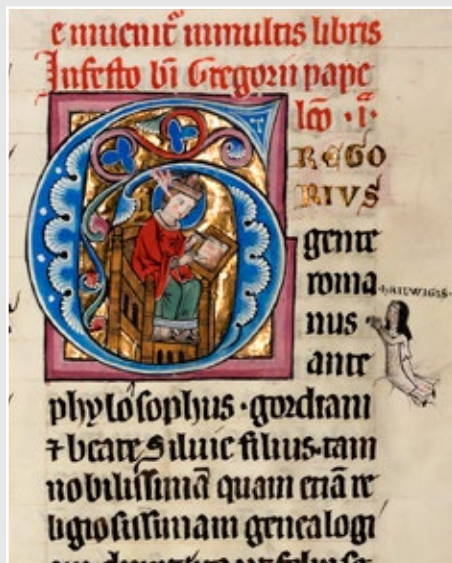 e inuenit̄ inmultis libris
Infesto bi Gregorii pape
lc̄o · i ·
REGO
RIVS
gente
roma
nus
ante
phylosophus · gordiani
⁊ beate Siluie filius · tam
nobilissimā quam etiā re
ligiosissimam genealogi